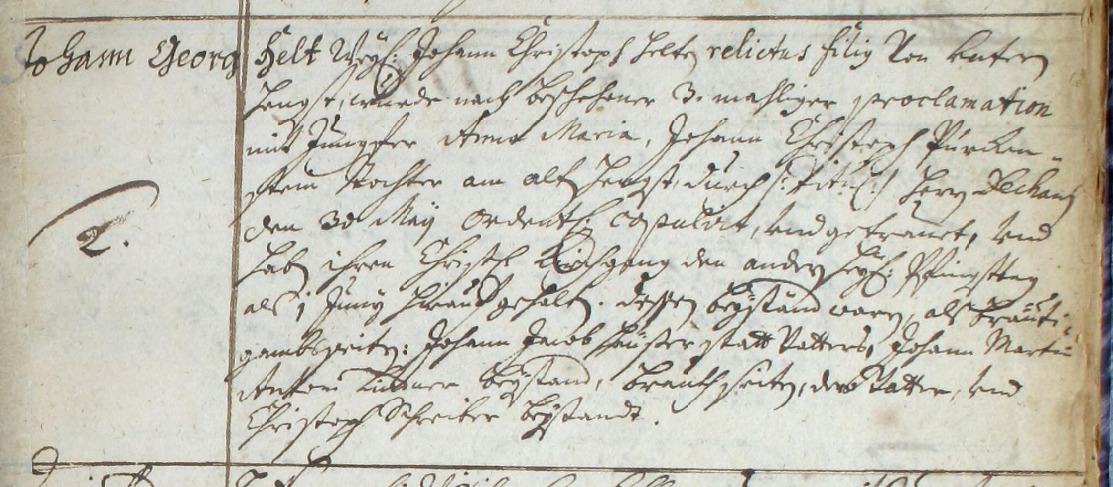 Johann Georg Helt Weyl: Johann Christoph Helten relictus filiq Von Untern
Hengst, wurde nach beschehener 3. mahliger proclamation
mit Jungfer Anna Maria, Johann Christoph
Tochter am alt Hengst, durch /: titul: / Herrn Dechant
den 30 Maÿ ordentl: copulirt, und getrauet, und
habn ihren Christl Kirchgang den andern heyl: Pfingsttag
als 1 Junÿ hierauf gehalten. dessen beÿständ waren, als bräuti=
gambseiten: Johann Jacob statt Vatters, Johann Martin
Anton beÿstand, brauthseiten, der Vatter, und
Christoph Schreiber beÿstandt.
2.